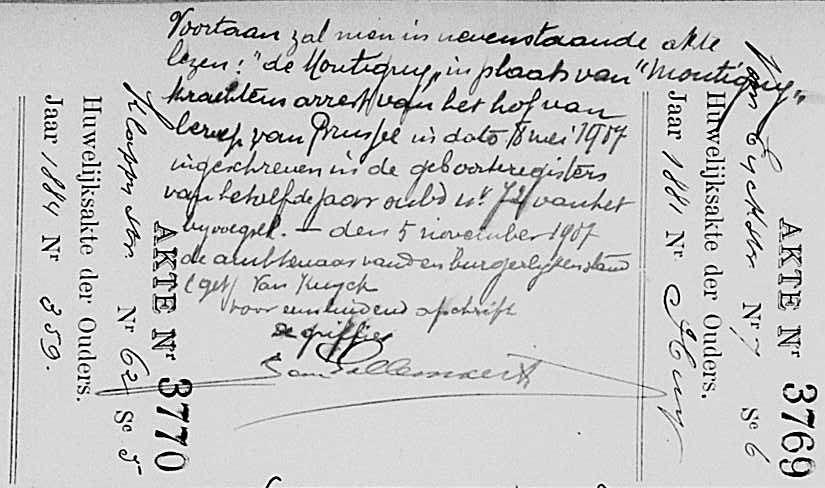 Voortaan zal men in nevenstaande akte
lezen: "de Montigny" in plaats van "Montigny"
krachtens arrest van het hof van
beroep van Brussel in dato 8 mei 1907
ingeschreven in de geboorteregisters
van hetzelfde jaar onder nr 72 van het
bijvoegsel. — den 5 november 1907
de ambtenaar van den burgerlijken stand
(get) Van Kuyck
voor eensluidend afschrift
de griffier
AKTE Nr 3769
Eyckstr Nr 7 Se 6
Huwelijksakte der Ouders.
Jaar 1881 Nr
AKTE Nr 3770
Klappstr. Nr 62 Se 5
Huwelijksakte der Ouders.
Jaar 1884 Nr 359.